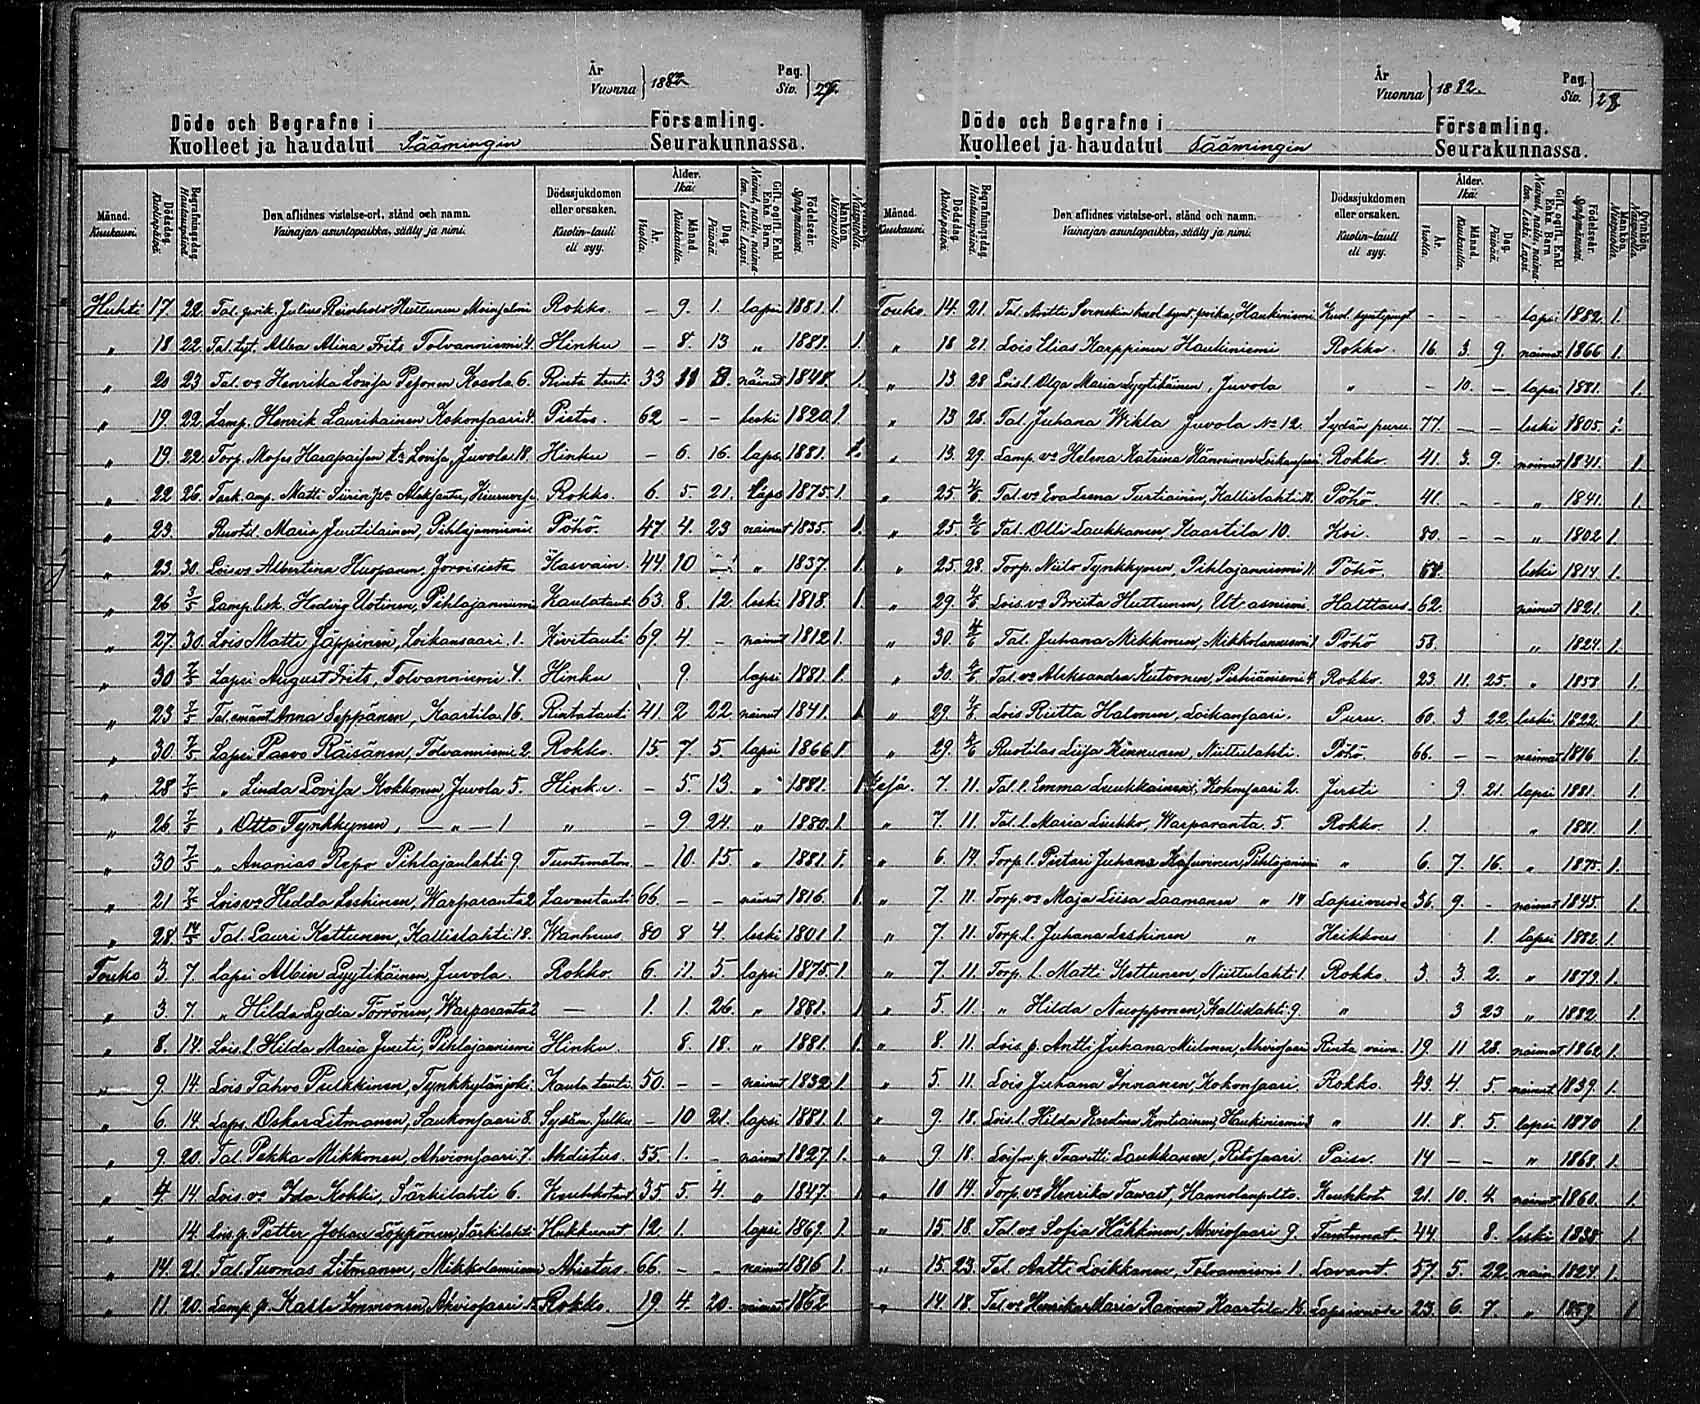 År Vuonna } 1882. Pag. Siv. } 27.
Döde och Begrafne i Församling.
Kuolleet ja haudatut Säämingin Seurakunnassa.
Månad. Kuukausi. Dödsdag. Kuolinpäivä. Begrafningsdag. Hautauspäivä. Den aflidnes vistelse-ort, stånd och namn. Vainajan asuntopaikka, sääty ja nimi. Dödssjukdomen eller orsaken. Kuolin-tauti eli syy. Ålder. Ikä: År. Vuotta. Månad. Kuukautta. Dag. Päivää. Gift, ogift, Enkl. Enka, Barn. Nainut, naitu, naimaton, Leski, Lapsi. Födelseår. Syntymävuosi. Mankön. Miespuolia. Naispuolia.
Huhti 17. 22. Tal. poik. Julius Reinhold Huttunen Moinsalmi Rokko. — 9. 1. lapsi 1881. 1.
„ 18 22. Tal. tyt. Alba Alina Frits Tolvanniemi 4. Hinku — 8. 13 „ 1881. 1.
„ 20 23 Tal. vo Henrika Lovisa Pesonen Kosola 6. Rinta tauti 33 11 nainut 1848. 1.
„ 19. 22. Lamp. Henrik Laurikainen Kokonsaari 4. Pistos. 62 — — leski 1820. 1.
„ 19. 22. Torp. Moses Harapaisen Lovisa, Juvola 18. Hinku — 6. 16. laps. 1881. 1.
„ 22 26. Matti Aleksanter, Rokko. 6. 5. 21. Laps 1875. 1.
„ 23. Ruotil. Maria Juutilainen, Pihlajanniemi Pöhö. 47 4. 23 nainut 1835. 1.
„ 23. 30. Lois vo Albertina Kuopanen, Joroisista Kasvain. 44 10 — „ 1837. 1.
„ 26 3/5 Lamp. lesk. Hedvig Uotinen, Pihlajanniemi Kaulatauti 63. 8. 12. leski 1818. 1.
„ 27. 30. Lois Matti Jäppinen, Loikansaari. 1. Kivitauti 69. 4. - nainut 1812 1.
„ 30 7/5 Lapsi August Frits, Tolvanniemi 4. Hinku 9. lapsi 1881. 1.
„ 23 7/5 Tal. emänt Anna Seppänen, Kaartila 16. Rintatauti 41. 2 22 nainut 1841. 1
„ 30. 7/5 Lapsi Paavo Räisänen, Tolvanniemi 2. Rokko. 15. 7. 5. lapsi 1866 1.
„ 28 7/5 „ Linda Lovisa Kokkonen, Juvola 5. Hinku. — 5. 13. „ 1881. 1
„ 26 7/5 „ Otto Tynkkynen, — „ — 1 „ — 9 24. „ 1880. 1.
„ 30 7/5 „ Ananias Repo Pihlajanlahti 9 Tuntematon. — 10. 15. „ 1881. 1.
„ 21 7/5 Lois vo Hedda Leskinen, Warparanta 2 Lavantauti 66. — — nainut 1816. 1.
„ 28. 14/5 Tal. Lauri Kettunen, Kallislahti 18. Wanhuus 80 8 4. leski 1801 1
Touko 3. 7. Lapsi Albin Lyytikäinen, Juvola. Rokko. 6. 11. 5. lapsi 1875. 1.
„ 3. 7. „ Hilda Lydia Torrönen, Warparanta 2 — 1. 1. 26. „ 1881. 1
„ 8. 14. Lois. l. Hilda Maria Juuti, Pihlajanniemi Hinku. 8. 18. „ 1881. 1.
„ 9 14. Lois Tahvo Pulkkinen, Tynkkylänjoki Kaula tauti 50. — — nainut 1832. 1.
„ 6. 14. Laps. Oskar Litmanen, Saukonsaari 8. Sydäm. Julku — 10 21. lapsi 1881. 1.
„ 9 20. Tal. Pekka Mikkonen, Ahvionsaari 7. Ahdistus. 55. 1. - nainut 1827. 1.
„ 4. 14. Lois. vo Ida Kokki, Särkilahti 6. Keuhkotaut 35 5. 4. „ 1847. 1
„ 14. Lois. p. Petter Johan Löppönen, Särkilahti Hukkunut 12. 1. lapsi 1869. 1.
„ 14. 21. Tal. Tuomas Litmanen, Mikkolanniemi Ahistus. 66. — — nainut 1816 1.
„ 11. 20. Lamp. p. Kalle Immonen, Ahviosaari Rokko. 19 4. 20. nainut 1862
År Vuonna } 1882. Pag. Siv. } 28
Döde och Begrafne i Församling.
Kuolleet ja haudatut Säämingin Seurakunnassa.
Månad. Kuukausi. Dödsdag. Kuolinpäivä. Begrafningsdag. Hautauspäivä. Den aflidnes vistelse-ort, stånd och namn. Vainajan asuntopaikka, sääty ja nimi. Dödssjukdomen eller orsaken. Kuolin-tauti eli syy. Ålder. Ikä: År. Vuotta. Månad. Kuukautta. Dag. Päivää. Gift, ogift, Enkl. Enka, Barn. Nainut, naitu, naimaton, Leski, Lapsi. Födelseår. Syntymävuosi. Mankön. Miespuolia. Qvinkön. Naispuolia.
Touko. 14. 21. Tal. Antti Sernekin kuol. synt. poika, Haukiniemi Kuol. syntynyt — — — lapsi 1882. 1.
„ 18 21. Lois Elias Karppinen Haukiniemi Rokko. 16. 3. 9. naimat 1866 1.
„ 13 28 Lois l. Olga Maria Lyytikäinen, Juvola „ — 10. — lapsi 1881. 1.
„ 13 28. Tal. Juhana Wikla Juvola No 12. Sydän puru. 77. — — leski 1805. 1.
„ 13. 29. Lamp. vo Helena Katrina Hänninen Loikansaari Rokko. 41. 3. 9. nainut 1841. 1
„ 25. 4/6 Tal. vo Eva Leena Turtiainen, Kallislahti Pöhö. 41. - - „ 1841. 1.
„ 25. Tal. Olli Laukkanen Kaartila 10. Koi. 80. - - „ 1802 1.
„ 25. 28. Torp. Niilo Tynkkynen, Pihlajanniemi 11. Pöhö leski 1814. 1.
„ 29. 4/6 Lois. vo Briita Huttunen, Utrasniemi Halttaus. 62. nainut 1821. 1.
„ 30. 4/6 Tal. Juhana Mikkonen, Mikkolanniemi 1 Pöhö 58. „ 1824. 1.
„ 30. 4/6 Tal. vo Aleksandra Kutvonen, 4 Rokko. 23. 11. 25. „ 1858 1.
„ 29. 4/6 Lois Riitta Halonen, Loikansaari. Puru. 60. 3 22. leski 1822. 1.
„ 29. 4/6 Ruotilas Liisa Kinnunen, Niittulahti. Pöhö. 66. — — naimat 1816 1.
Kesä. 7. 11. Tal. l. Emma Luukkainen, Kokonsaari 2. 9. 21. lapsi 1881. 1.
„ 7. 11. Tal. l. Maria Liukko, Warparanta, 5. Rokko. 1. „ 1881. 1.
„ 6. 14. Torp. l. Pietari Juhana Pihlajaniemi „ 6. 7. 16. „ 1875. 1.
„ 7. 11. Torp. vo Maja Liisa Laamanen „ 14 Lapsivuode 36. 9. - nainut 1845. 1.
„ 7. 11. Torp. l. Juhana Leskinen „ Heikkous 1. lapsi 1882. 1.
„ 7. 11. Torp. l. Matti Kettunen, Niittulahti 1. Rokko. 3. 3 2. „ 1879. 1.
„ 5. 11. „ Hilda Nuopponen, Kallislahti 9 „ 3 23 „ 1882 1.
„ 8. 11. Lois. p. Antti Juhana Miilonen, Ahviosaari Rinta 19. 11 28. naimat 1862 1.
„ 5. 11. Lois Juhana Innanen, Kokonsaari. Rokko. 43. 4. 5 nainut 1839. 1.
„ 9. 18. Lois. l. Hilda Karolina Kontiainen, Haukiniemi 3 „ 11. 8. 5. lapsi 1870 1.
„ 9 18. Taavetti Laukkanen, Ritosaari. Paise. 14 — — „ 1868. 1.
„ 10 14. Torp. vo Henrika Tawast, Hannolanpelto. Keuhkot. 21. 10. 4. nainut 1860. 1.
„ 15. 18. Tal. vo Sofia Häkkinen, Ahviosaari 9. Tuntemat. 44 8. leski 1838. 1.
„ 15. 23. Tal. Antti Loikkanen, Tolvanniemi 1. Lavant. 57. 5. 22. nain. 1824. 1.
„ 14 18. Tal. vo Henrika Maria Rainen Kaartila 16. Lapsivuode 23. 6. 7. „ 1859. 1